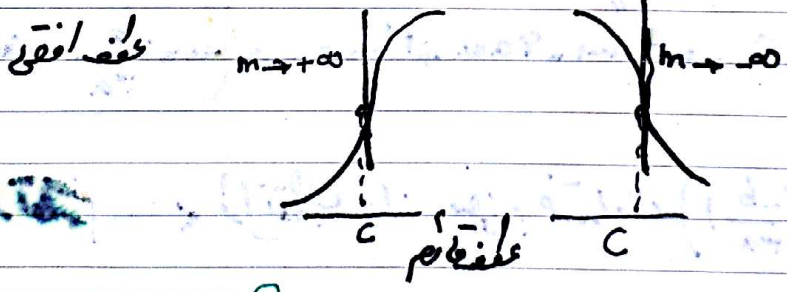 عطف افقی
m → +∞
m → -∞
C
C
عطف قائم